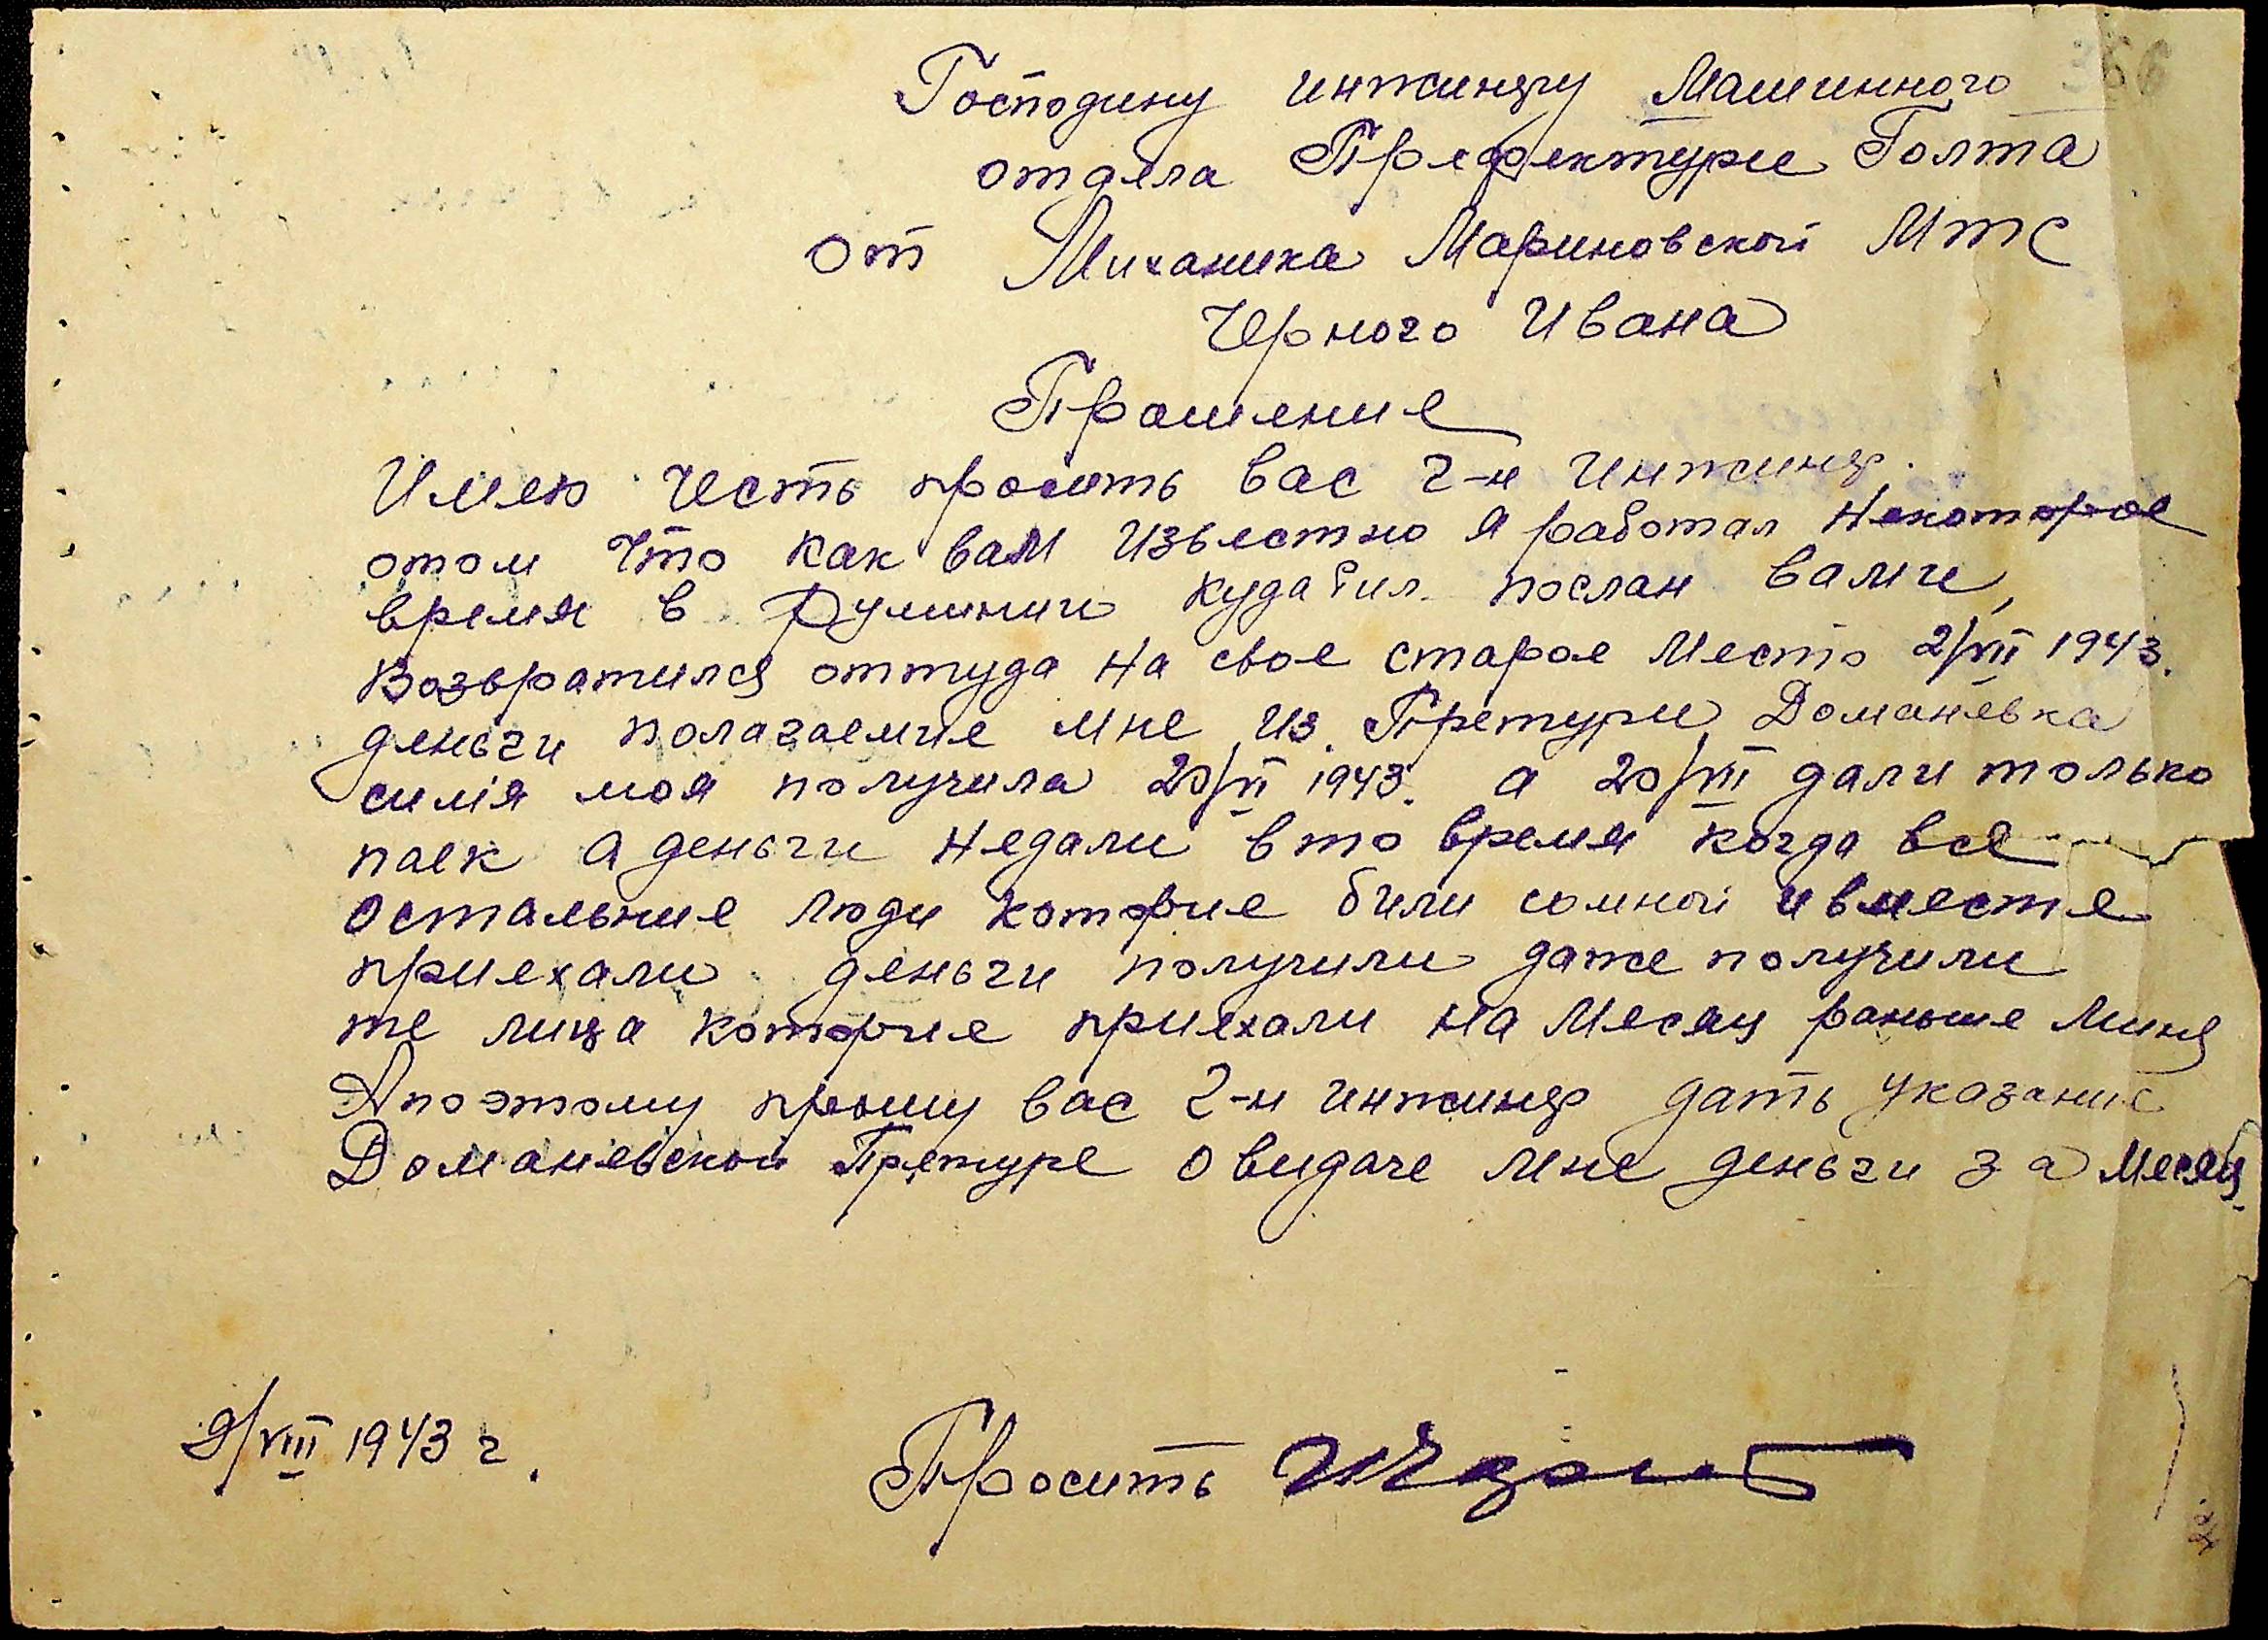 Господину инжинеру Машинного
отдела Префектуры Голта
от Миханика Мариновской МТС
Черного Ивана
Прошение
Имею честь просить вас г-н инжинер.
отом что как вам известно я работал некоторое
время в Румынии куда бил послан вами,
возвратился оттуда на свое старое место 2/VII 1943.
деньги полагаемие мне из Претури Доманевка
симя моя получила 20/VI 1943. а 20/VII дали только
паек а деньги недали в то время когда все
остальние люди которие били сомной и вместе
приехали деньги получили даже получили
те лица которие приехали на месяц раньше миня
А поэтому прошу вас г-н инжинер дать указание
Доманевской Претуре о видаче мне деньги за месяц.
9/VIII 1943 г.
Просить